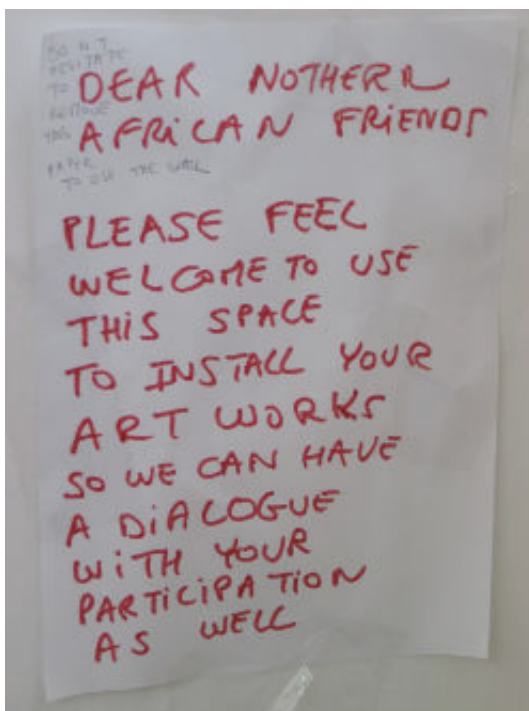 DO NT
HESITATE
TO
REMOVE
THIS
PAPER
TO USE THE WALL
DEAR NOTHERR
AFRiCAN FRiENDS
PLEASE FEEL
WELCOME TO USE
THIS SPACE
TO INSTALL YOUR
ART WORKS
SO WE CAN HAVE
A DiALOGUE
WiTH YOUR
PARTiCiPATION
AS WELL